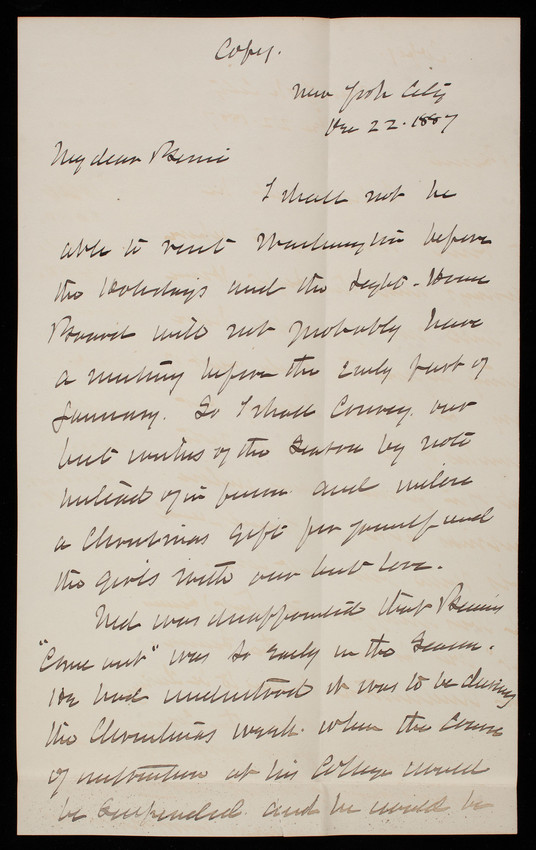 Copy.
New York City
Dec 22. 1887
My dear Bernie
I shall not be
able to visit Washington before
the Holidays and the Light-House
Board will not probably have
a meeting before the Early part of
January. So I shall Convey our
best wishes of the Season by note
instead of in person and inclose
a Christmas gift for yourself and
the girls with our best love.
Ned was disappointed that
"Come out" was so Early in the Season.
He had understood it was to be during
the Christmas week when the Course
of instruction at his College would
be suspended and he would be